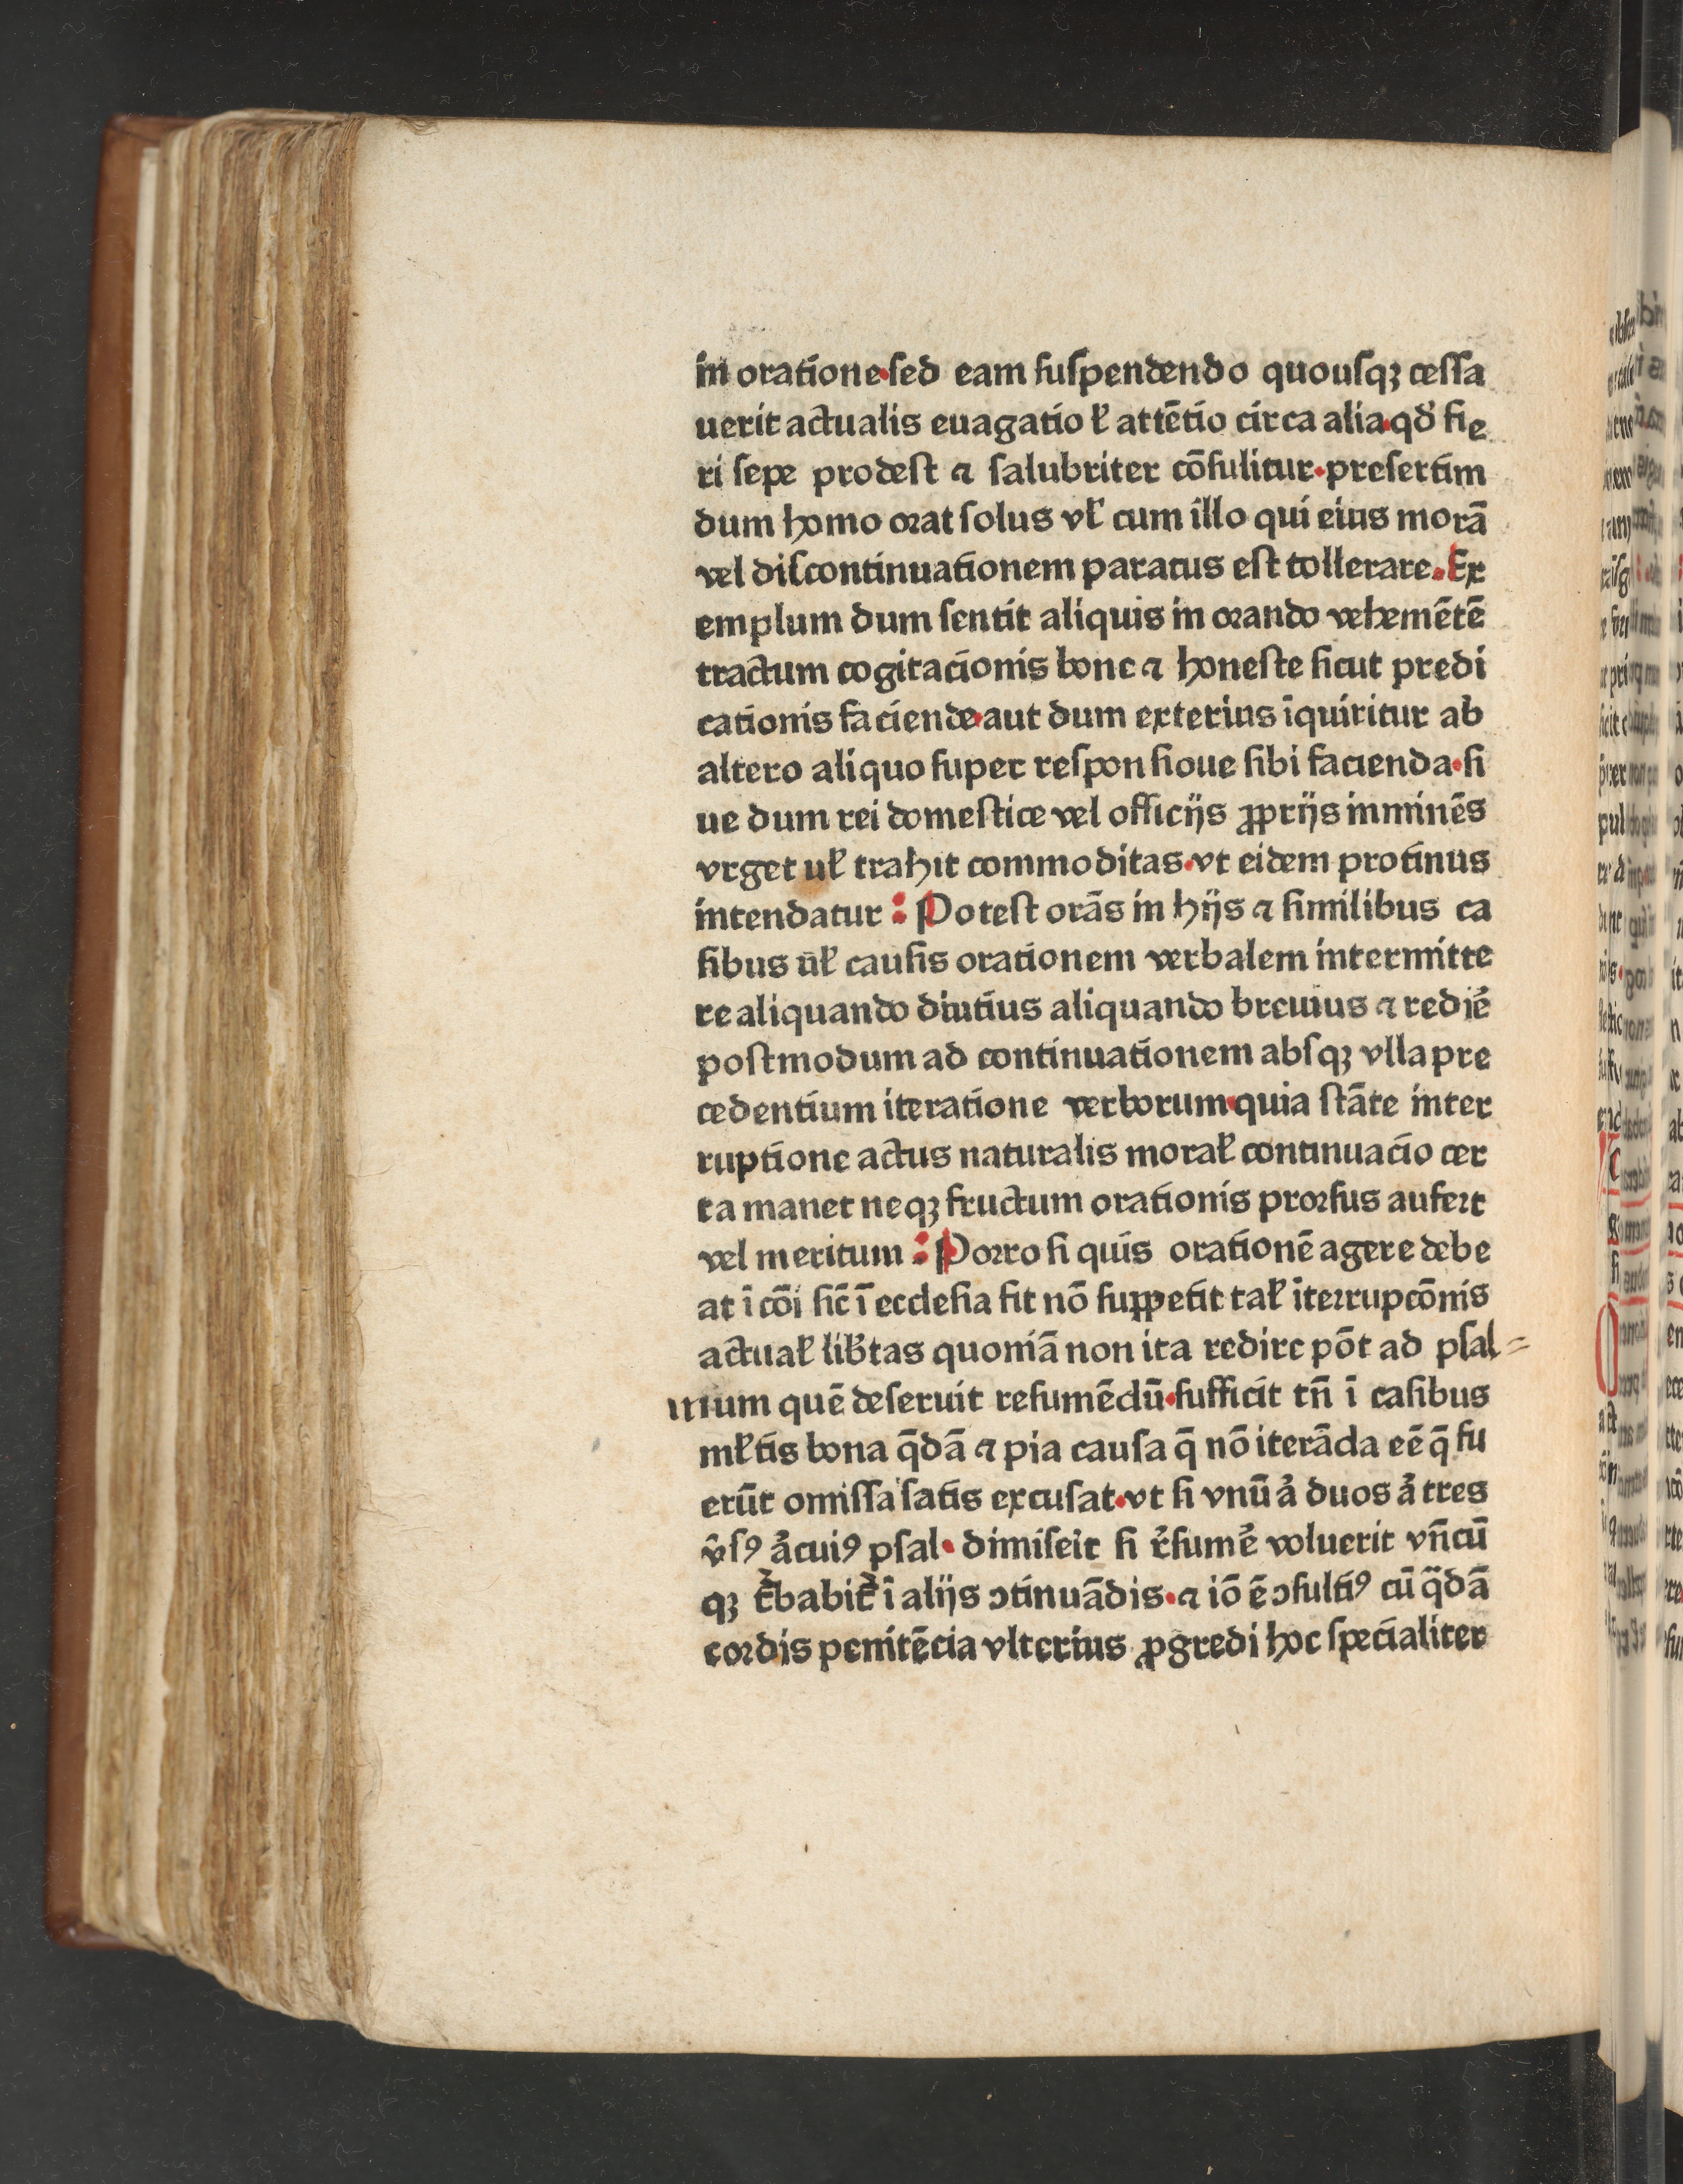 in oratione·ſed eam ſuſpendendo quouſqꝫ ceſſa
uerit actualis euagatio ł attētio circa alia·qđ fie
ri ſepe prodeſt ⁊ ſalubriter cōſulitur·preſertim
dum homo orat ſolus vł cum illo qui eius morā
vel diſcontinuationem paratus eſt tollerare. Ex
emplum dum ſentit aliquis in orando vehemētē
tractum cogitacionis bone ⁊ honeſte ſicut predi
cationis faciende·aut dum exterius īquiritur ab
altero aliquo ſuper reſponſioue ſibi facienda·ſi
ue dum rei domeſtice vel officijs ꝓprijs imminēs
vrget uł trahit commoditas·vt eidem protinus
intendatur : Poteſt orās in hijs ⁊ ſimilibus ca
ſibus ūł cauſis orationem verbalem intermitte
re aliquando diutius aliquando breuius ⁊ rediē
poſtmodum ad continuationem abſqꝫ vlla pre
cedentium iteratione verborum·quia ſtāte inter
ruptione actus naturalis morał continuacio cer
ta manet neqꝫ fructum orationis prorſus aufert
vel meritum : Porro ſi quis orationē agere debe
at ī cōi ſic̄ ī eccleſia ſit nō ſuppetit tał īterrupcōnis
actuał lib̄tas quoniā non ita redire pōt ad pſal=
mum quē deſeruit reſumēdū·ſufficit tn̄ ī caſibus
młtis bona q̄dā ⁊ pia cauſa q̄ nō iterāda eē q̄ fu
erūt omiſſa ſatis excuſat·vt ſi vnū aͥ duos aͥ tres
v̄ſꝰ aͥcuiꝰ pſal· dimiſeit ſi r̉ſumē̉ voluerit vn̄cū
qꝫ t̉babit̉ ī alijs ɔtinuādis·⁊ iō ē ɔſultiꝰ cū q̄dā
cordis penitēcia vlterius ꝓgredi hoc ſpecialiter